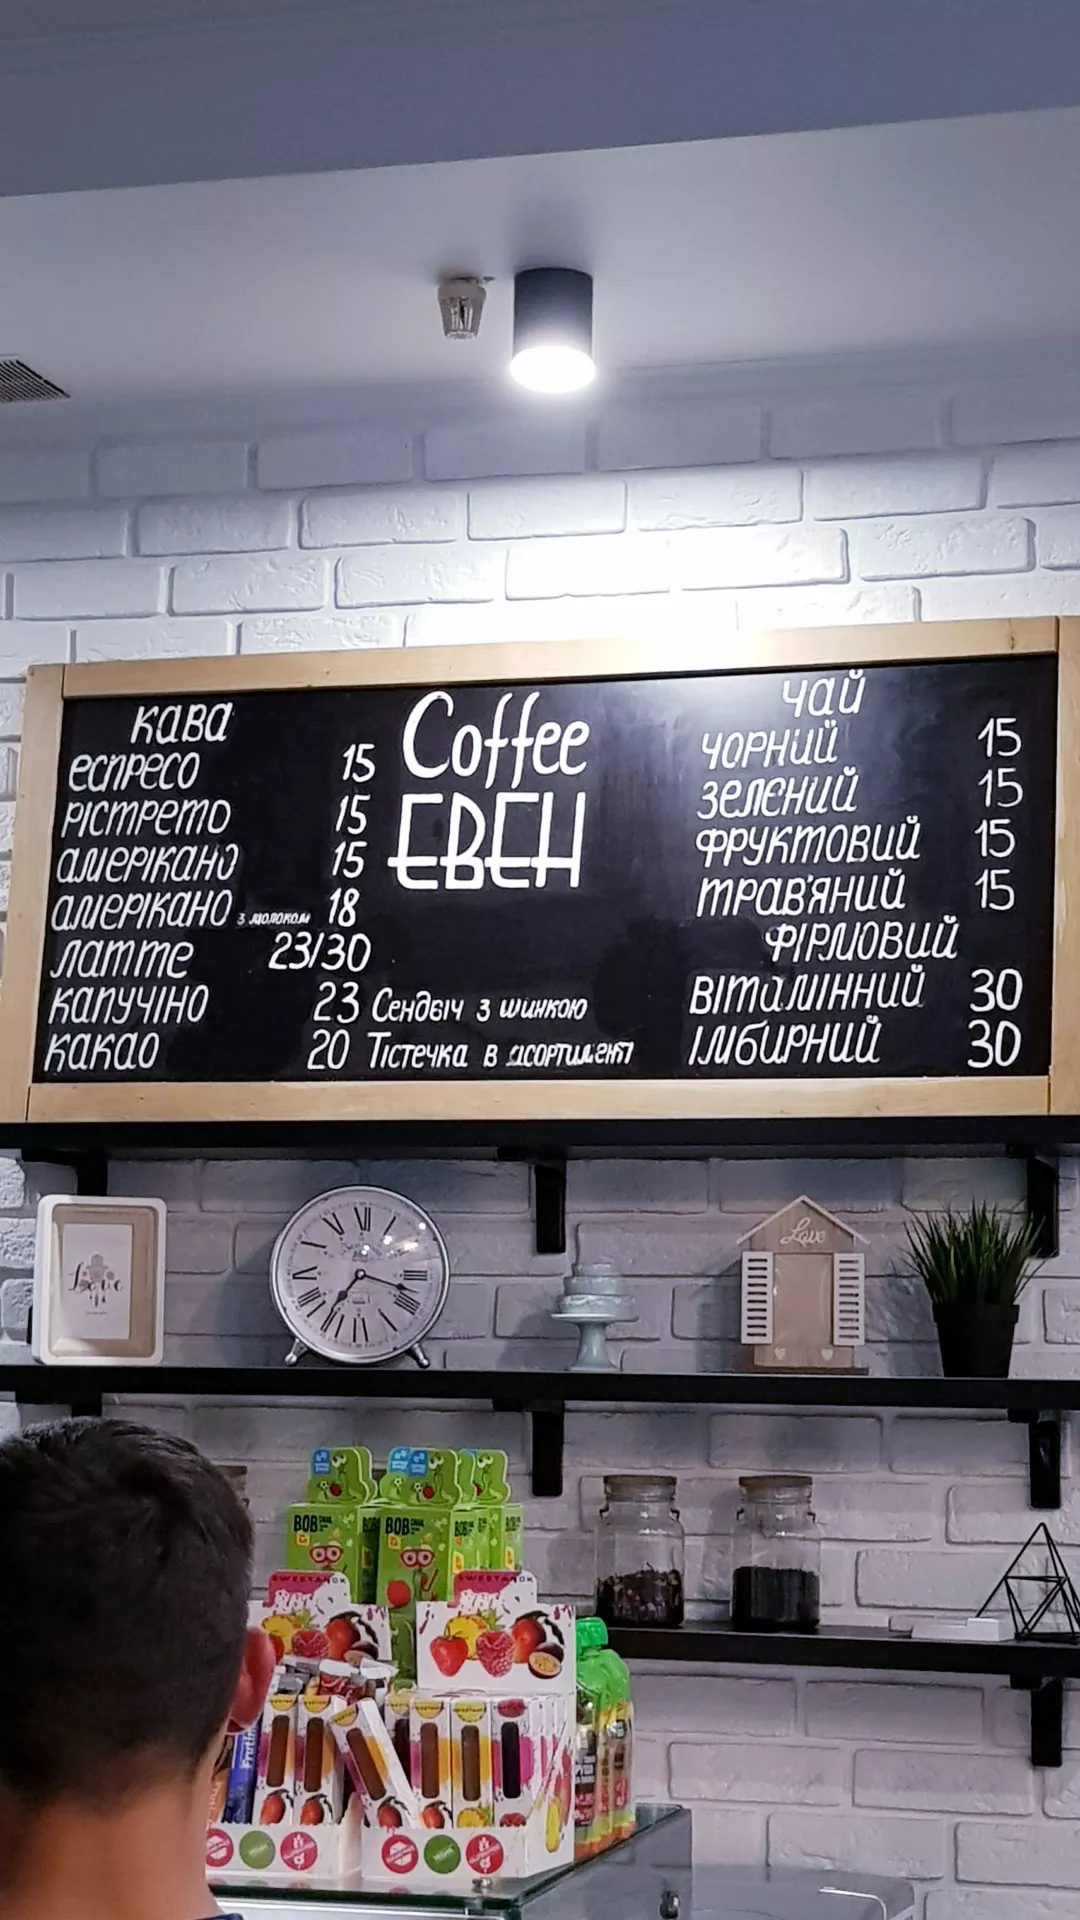 Кава
еспресо 15
рістрето 15
амерікано 15
амерікано з молоком 18
латте 23/30
капучіно 23
какао 20
Coffee
ЕВЕН
Сендвіч з шинкою
Тістечка в асортименті
Чай
чорний 15
зелений 15
фруктовий 15
трав'яний 15
фірмовий
вітамінний 30
імбирний 30
Love
Love
BOB SNAIL
BOB SNAIL
SWEETANOK
SWEETANOK